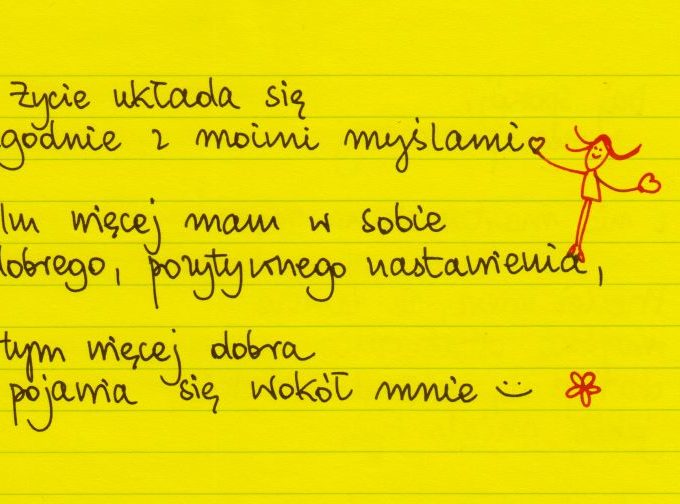 Życie układa się
godnie z moimi myślami
Im więcej mam w sobie
dobrego, pozytywnego nastawienia,
tym więcej dobra
pojawia się wokół mnie :)